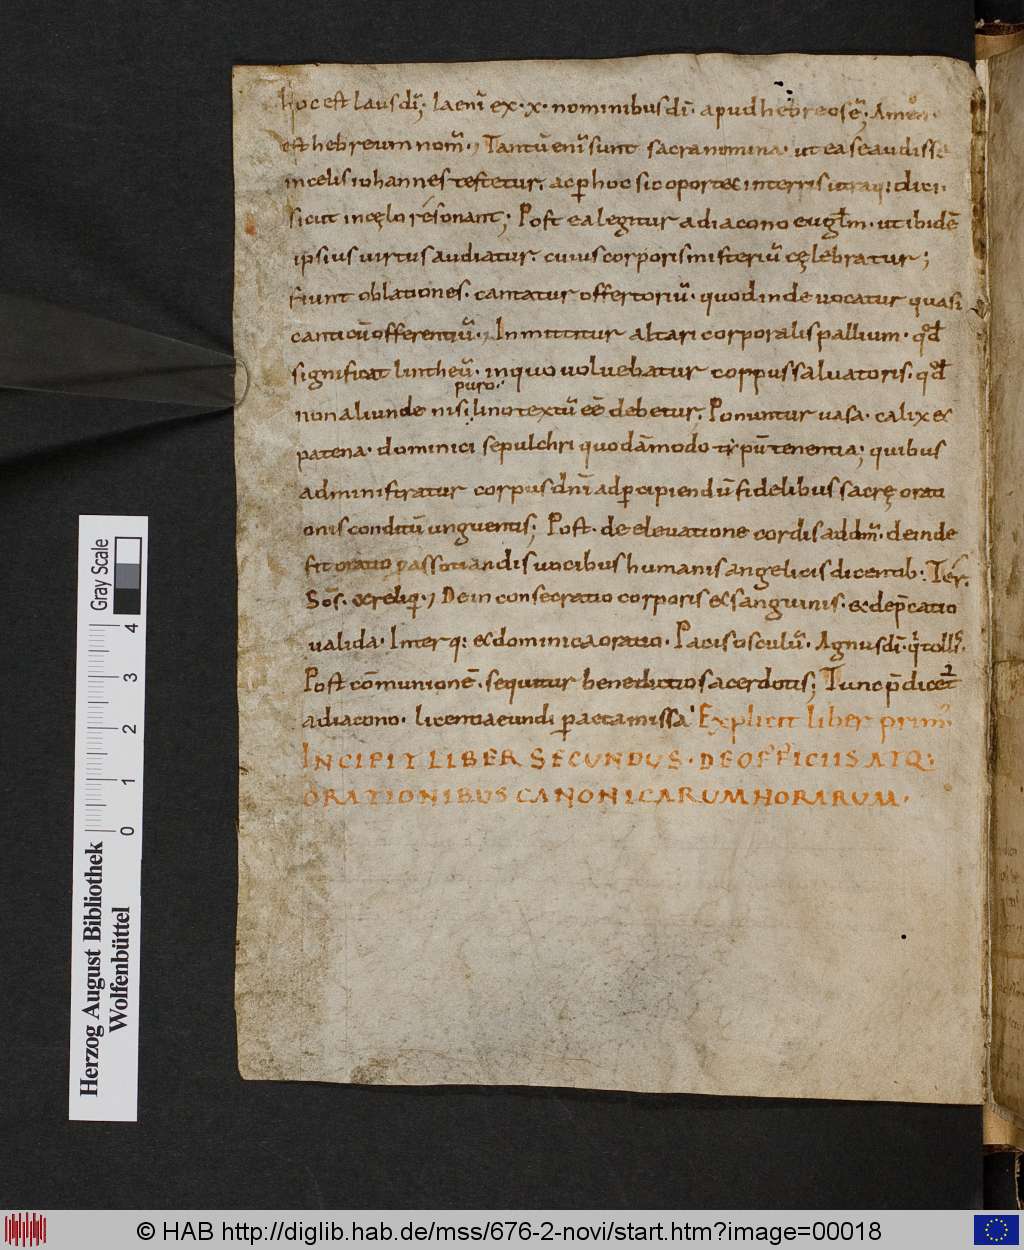 hoc est laus dī; Iaenī ex·x·nominibus dī· apud hebreos ē; Amen·
est hebreum nom̄; Tantū enī sunt sacra nomina· ut ea se audisse
in celis iohannes testetur; ac p̲ hoc sic oportet in terris utraq; dici·
sicut in cęlo resonant; Post ea legitur a diacono euglm̄· ut ibidē
ipsius uirtus audiatur· cuius corporis misteriū cęlebratur;
Fiunt oblationes· cantatur offertoriū· quod inde uocatur quasi
canticū offerentiū; Inmittitur altari corporalis pallium· qđ
significat lintheū· in quo uoluebatur corpus saluatoris· qđ
puro·
non aliunde nisi lino textū eē debetur; Ponuntur uasa· calix et
patena· dominici sepulchri quodāmodo typū tenentia; quibus
administratur corpus dnī ad p̲cipiendū fidelibus sacrę orati
onis conditū unguentis; Post· de eleuatione cordis ad dom̄· deinde
fit oratio p̲ assotiandis uocibus humanis angelicis dicentib· Ter·
Scs̄· et reliq· Dein consecratio corporis et sanguinis· et dep̄catio
ualida· Interq; et dominica oratio· Pacis osculū· Agnus dī· q tolł·
Post cōmunionē· sequitur benedictio sacerdotis; Tunc p̄dicet
a diacono· licentia eundi p̲acta missa· Explicit liber prim·
INCIPIT LIBER SECUNDUS· DE OFFICIIS ATQ:
ORATIONIBUS CANONICARUM HORARUM·
Gray Scale
4
3
2
1
0
Herzog August Bibliothek
Wolfenbüttel
© HAB http://diglib.hab.de/mss/676-2-novi/start.htm?image=00018